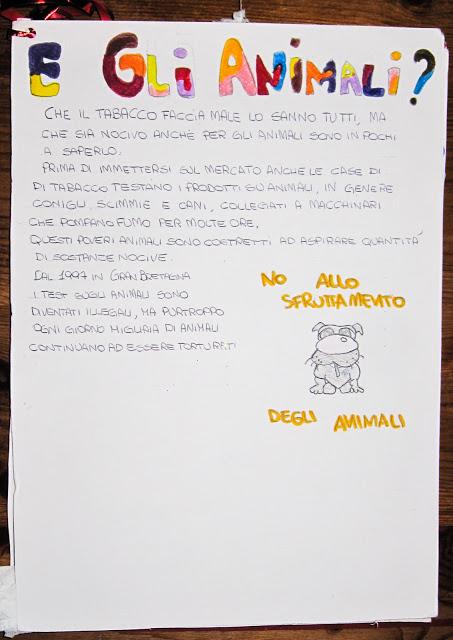 E GLI ANIMALI?
CHE IL TABACCO FACCIA MALE LO SANNO TUTTI, MA
CHE SIA NOCIVO ANCHE PER GLI ANIMALI SONO IN POCHI
A SAPERLO.
PRIMA DI IMMETTERSI SUL MERCATO ANCHE LE CASE DI
DI TABACCO TESTANO I PRODOTTI SU ANIMALI, IN GENERE
CONIGLI, SCIMMIE E CANI, COLLEGATI A MACCHINARI
CHE POMPANO FUMO PER MOLTE ORE.
QUESTI POVERI ANIMALI SONO COSTRETTI AD ASPIRARE QUANTITÁ
DI SOSTANZE NOCIVE.
DAL 1997 IN GRAN BRETAGNA
I TEST SUGLI ANIMALI SONO
DIVENTATI ILLEGALI, MA PURTROPPO
OGNI GIORNO MIGLIAIA DI ANIMALI
CONTINUANO AD ESSERE TORTURATI
NO ALLO
SFRUTTAMENTO
DEGLI ANIMALI